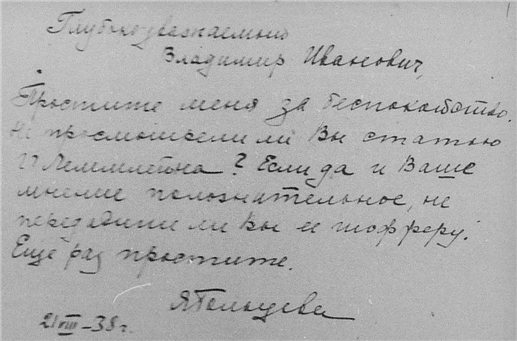 Глубокоуважаемый
Владимир Иванович,
Простите меня за беспокойство.
Не просмотрели ли Вы статью
Г. Леммлейна? Если да и Ваше
мнение положительное, не
передадите ли Вы ее шофферу.
Еще раз простите.
21 VIII – 38 г.